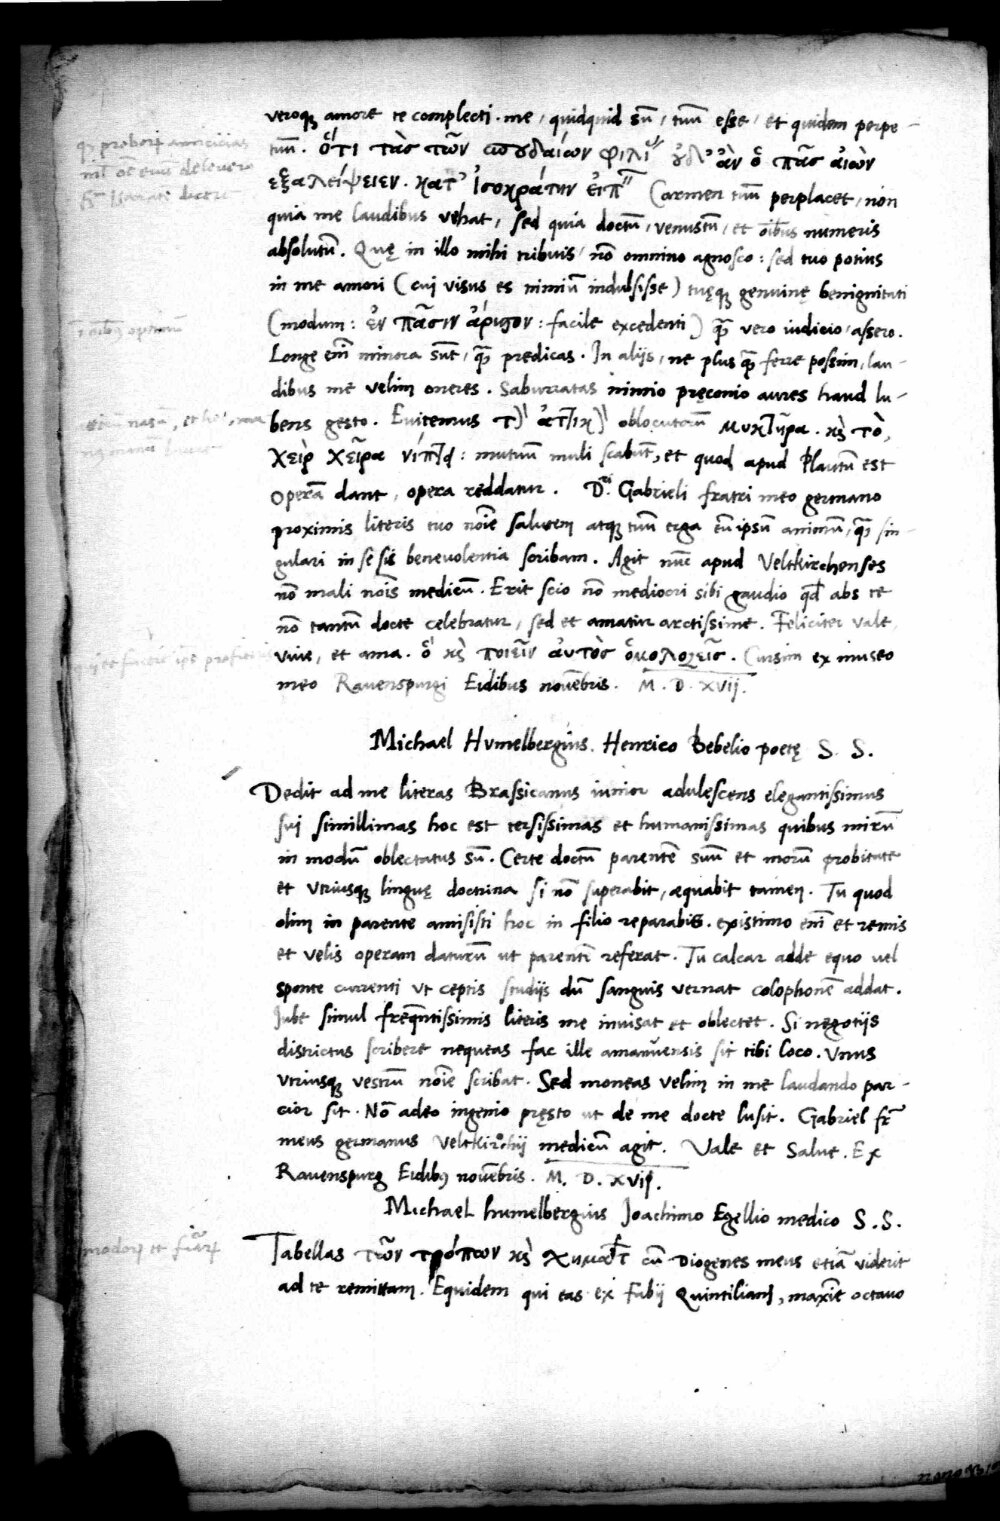 veroq₃ amore te complecti. me, quidquid sū, tuū esse, et quidem perpe-
tuū. ὅτι τὰς τῶν σπουδαίων φιλί οὐδ' ἂν ὁ πᾶς αἰὼν
ἐξαλείψειεν. κατ' ἰσοκράτην Carmen tuū perplacet, non
quia me laudibus vehat, sed quia doctū, venustū, et oībus numeris
absolutū. Quę in illo mihi tribuis, nō omnino agnosco: sed tuo potius
in me amori (cui visus es nimiū indulsisse) tuęq₃ genuinę benignitati
(modum: ἐν πᾶσιν ἄριστον: facile excedenti) q̄ȝ vero iudicio, assero.
Longe em̄ minora sūt, q̄ȝ predicas. In alijs, ne plus q̄ȝ ferre possim, lau-
dibus me velim oneres. Saburratas nimio pręconio aures haud lu-
bens gesto. Euitemus oblocutorū μυκτῆρα. κὶ τὸ,
χεὶρ χεῖρα νίπτει: mutuū muli scabūt, et quod apud Plautū est
Operā dant, opera reddatur. D. Gabrieli fratri meo germano
proximis literis tuo noīe salutem atq₃ tuū erga eūipsū animū, q̄ȝ sin-
gulari in sē sis beneuolentia scribam. Agit nūc apud Veltkirchenses
nō mali noīs medicū. Erit scio nō mediocri sibi gaudio qđ abs te
nō tantū docte celebratur, sed et amatur arctissime. Feliciter vale,
viue, et ama. ὃ κὶ ποιεῖν αὐτὸς ὁμολογεῖς. Cursim ex museo
meo Rauenspurgi Eidibus nouēbris. M. D. XVII.
Michael Humelbergius. Henrico Bebelio poetę S. S.
Dedit ad me literas Brassicanus iunior adulescens elegantissimus
sui simillimas hoc est tersissimas et humanissimas quibus mirū
in modū oblectatus sū. Certe doctū parentē suū et morū probitate
et vtriusq₃ linguę doctrina si nō superabit, æquabit tamen. Tu quod
olim in parente amisisti hoc in filio reparabis. existimo em̄ et remis
et velis operam daturū ut parentē referat. Tu calcar adde equo vel
sponte currenti ut cęptis studijs dū sanguis vernat colophonē addat.
Iube simul freq̄ntissimis literis me inuisat et oblectet. Si negotijs
districtus scribere nequeas fac ille amanuensis sit tibi loco. Vnus
vtriusq₃ vestrū noīe scribat. Sed moneas velim in me laudando par-
cior sit. Nō adeo ingenio pręsto ut de me docte lusit. Gabriel fr̄
meus germanus Veltkirchij medicū agit. Vale et Salue. Ex
Rauenspurg Eidibus nouēbris. M. D. XVII.
Michael humelbergius Joachimo Egellio medico S. S.
Tabellas τῶν τρόπων κὶ cū Diogenes meus etiā viderit
ad te remittam. Equidem qui eas ex Fabij Quintiliani, maxīe octauo